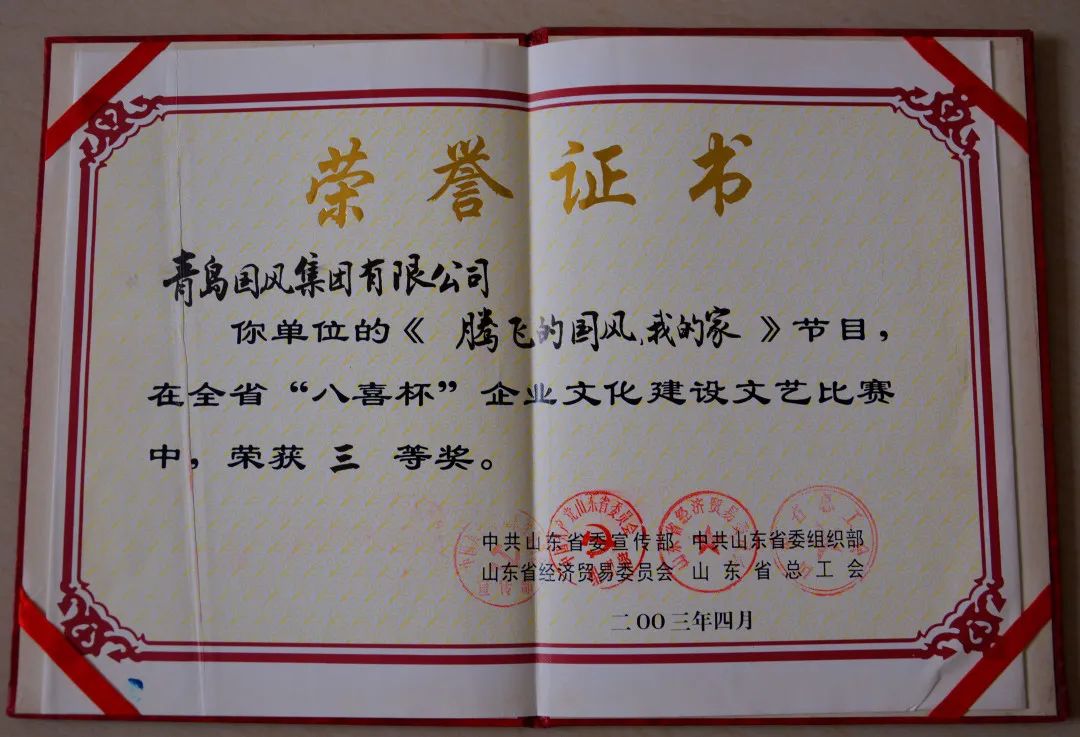 荣誉证书
青岛国风集团有限公司
你单位的《 腾飞的国风,我的家 》节目，
在全省“八喜杯”企业文化建设文艺比赛
中，荣获 三 等奖。
中共山东省委宣传部 中共山东省委组织部
山东省经济贸易委员会 山东省总工会
二OO三年四月